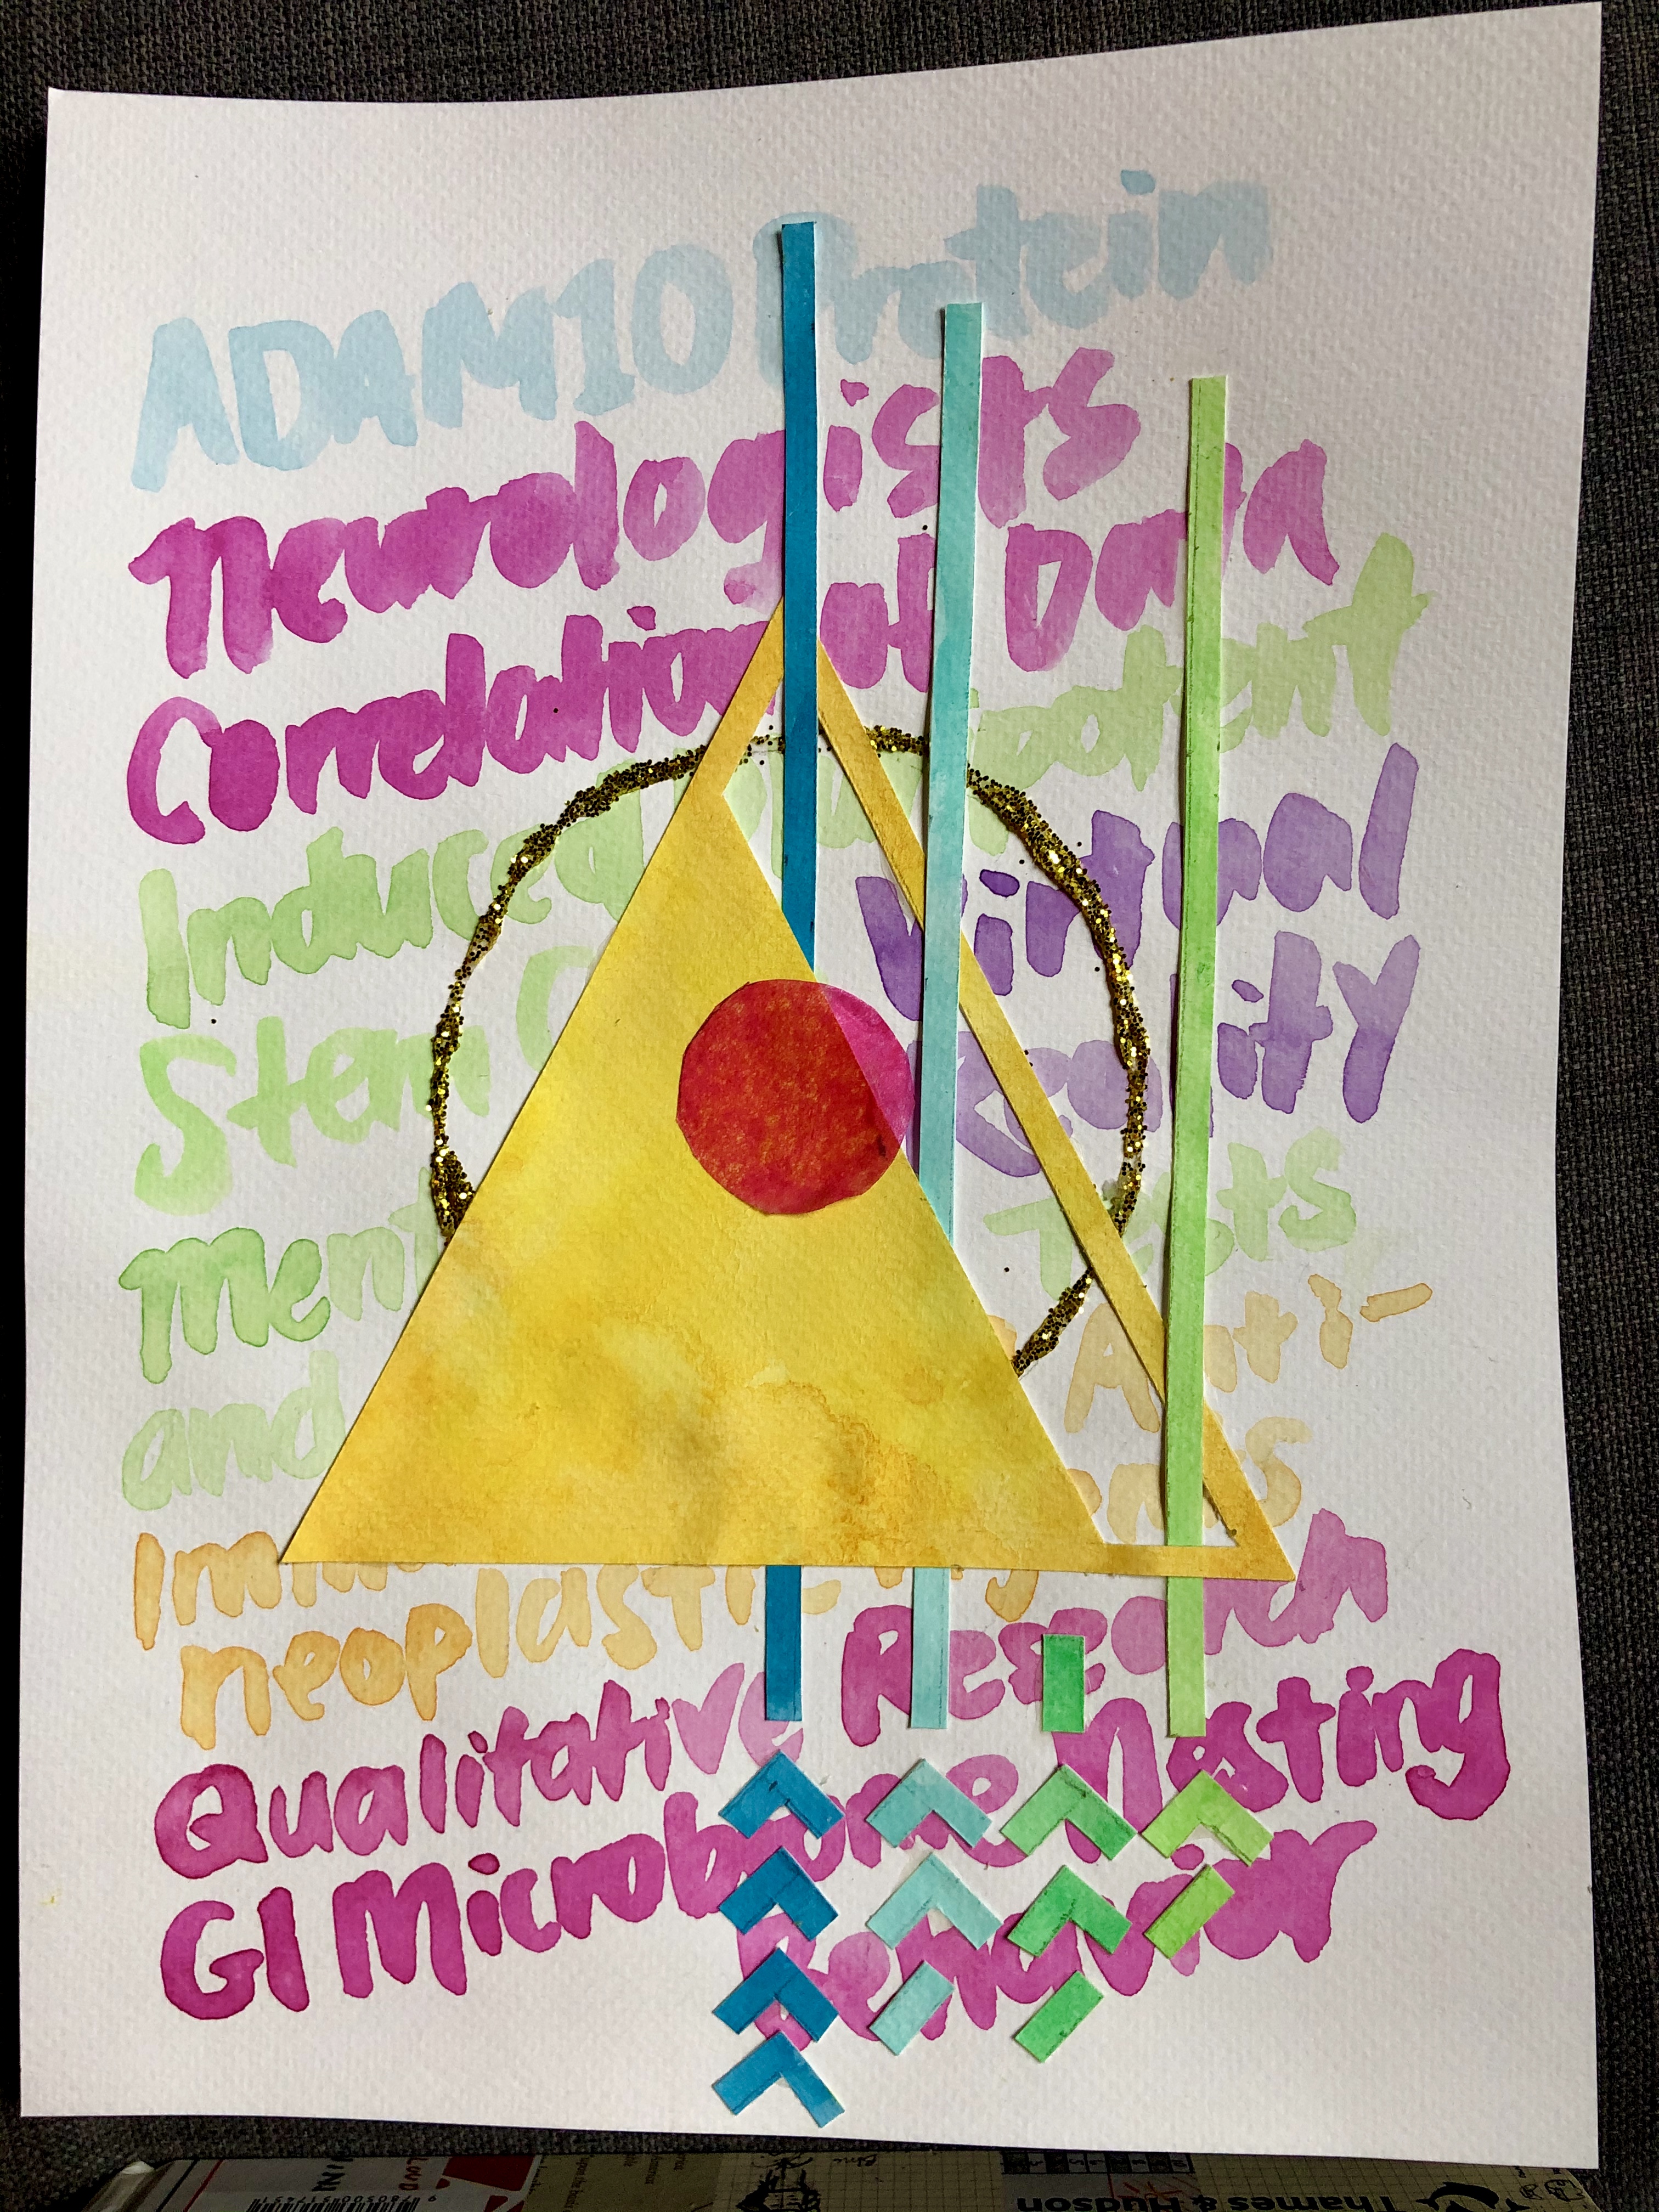 ADAM10 Protein
Neurologists
Correlation of Data
Induced
Stem
Virtual
Reality
Ment
Tests
and
Anti-
neoplastic
Qualitative Research
GI Microbiome Nesting
Behavior
Thames & Hudson